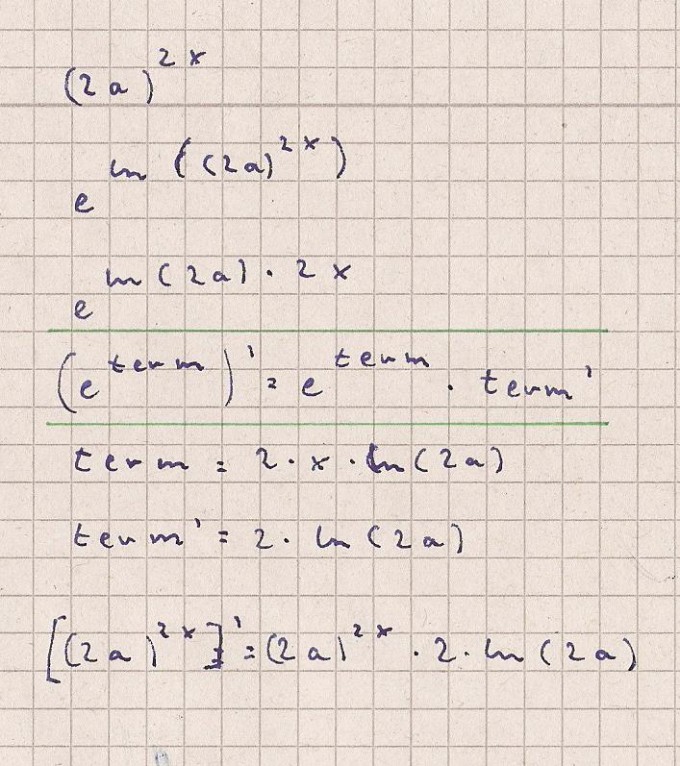 (2a)^2x
e^ln((2a)^2x)
e^ln(2a)·2x
(e^term)' = e^term · term'
term = 2·x·ln(2a)
term' = 2·ln(2a)
[(2a)^2x]' = (2a)^2x · 2·ln(2a)